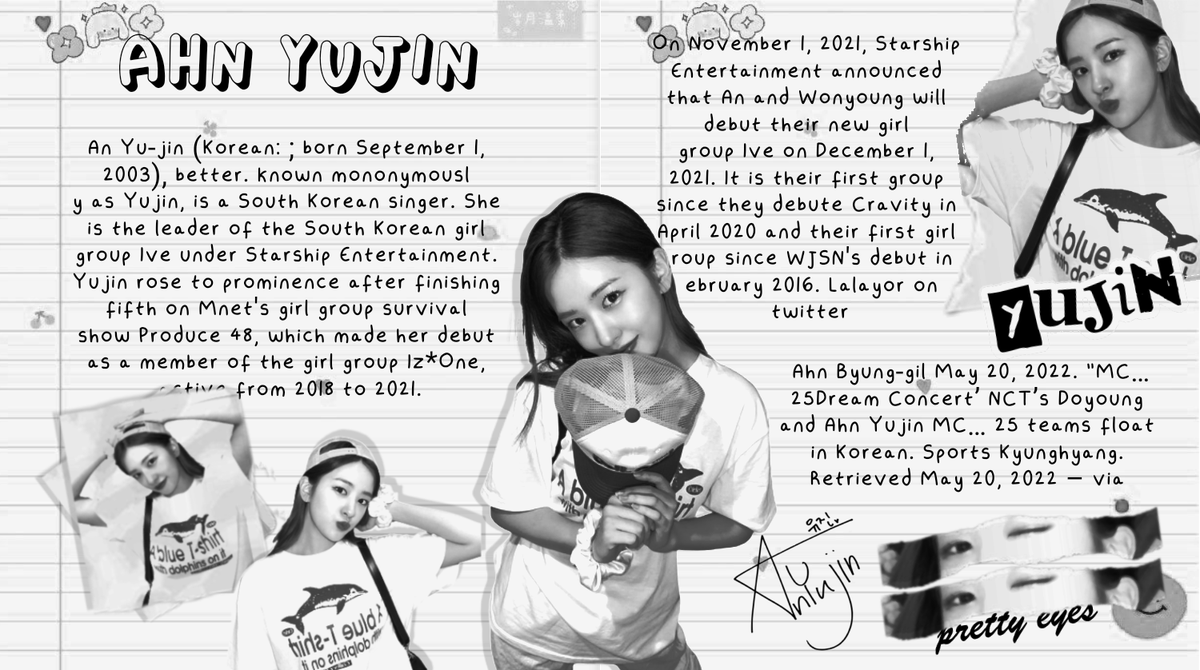 AHN YUJIN
An Yu-jin (Korean: ; born September 1,
2003), better. known mononymousl
y as Yujin, is a South Korean singer. She
is the leader of the South Korean girl
group Ive under Starship Entertainment.
Yujin rose to prominence after finishing
fifth on Mnet's girl group survival
show Produce 48, which made her debut
as a member of the girl group Iz*One,
from 2018 to 2021.
On November 1, 2021, Starship
Entertainment announced
that An and Wonyoung will
debut their new girl
group Ive on December 1,
2021. It is their first group
since they debute Cravity in
April 2020 and their first girl
roup since WJSN's debut in
ebruary 2016. Lalayor on
twitter
YUJIN
Ahn Byung-gil May 20, 2022. "MC...
25Dream Concert' NCT's Doyoung
and Ahn Yujin MC... 25 teams float
in Korean. Sports Kyunghyang.
Retrieved May 20, 2022 – via
유진
AnYujin
pretty eyes
A blue T-shirt
with dolphins on it
A blue T-shirt
dolphins on it
A blue T-
with dol